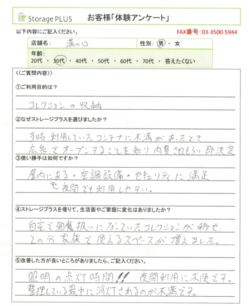 Storage PLUS お客様「体験アンケート」
以下内容にご記入ください。 FAX番号：03-3500-5944
店舗名： 溝の口 性別： 男 ・ 女
年齢：
20代 ・ 30代 ・ 40代 ・ 50代 ・ 60代 ・ 70代 ・ 答えたくない
((ご質問内容))
①ご利用目的は？
コレクションの収納
②なぜストレージプラスを選びましたか？
予時利用していたコンテナに不満があったとき
広告でオープンすることを知り内見させてもらい即決定
③使い勝手は如何ですか？
屋内による、空調設備・セキュリティに満足
夜間でも利用しやすい。
④ストレージプラスを借りて、生活面やご家庭に変化はありましたか？
自宅で邪魔扱いになっていたコレクションが移せ
その分家族で使えるスペースが増えました。
⑤改善した方が良いところがありましたら、ご記入ください。
照明の点灯時間!! 夜間利用に不便です。
整理している最中に消灯されるのが不満です。